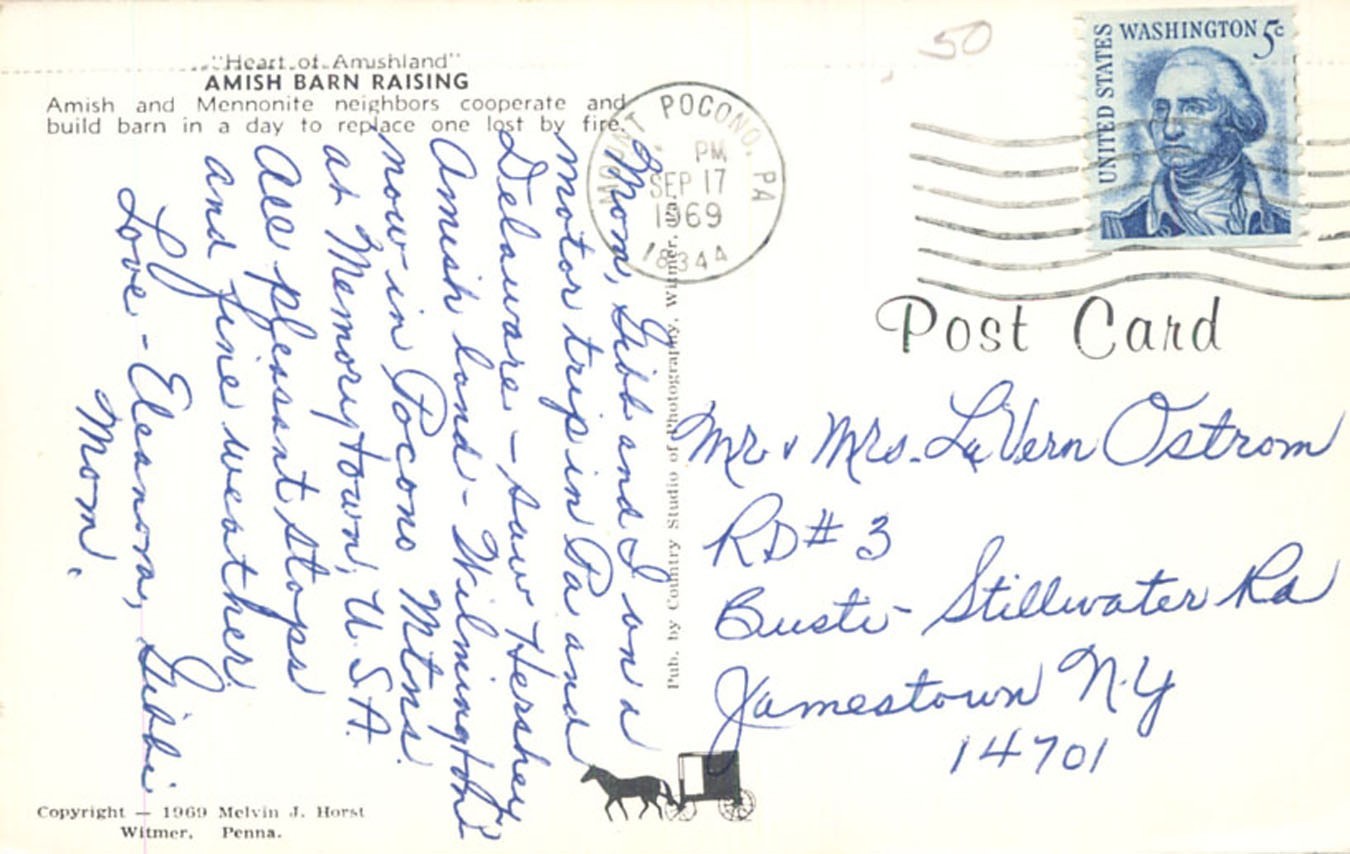 "Heart of Amishland"
AMISH BARN RAISING
Amish and Mennonite neighbors cooperate and
build barn in a day to replace one lost by fire.
Mom, Gibb and I on a
motor trip in Pa and
Delaware - saw Hershey
Amish land - Wilmington
now in Pocono Mtns.
at Memorytown, U.S.A.
All pleasant stops
and fine weather.
Love - Eleanora, Gibbi
Mom.
Copyright — 1969 Melvin J. Horst
Witmer, Penna.
Pub. by Country Studio of Photography, Witmer, Pa.
MOUNT POCONO, PA
PM
SEP 17
1969
18344
50
UNITED STATES
WASHINGTON 5c
Post Card
Mr & Mrs. LaVern Ostrom
RD# 3
Busti - Stillwater Rd
Jamestown N.Y
14701